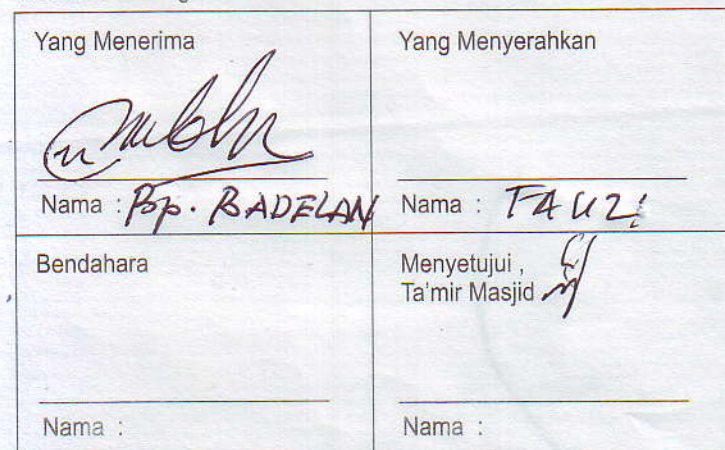 Yang Menerima
Yang Menyerahkan
Nama : Bp. BADELAN
Nama : FAUZI
Bendahara
Menyetujui ,
Ta'mir Masjid
Nama :
Nama :